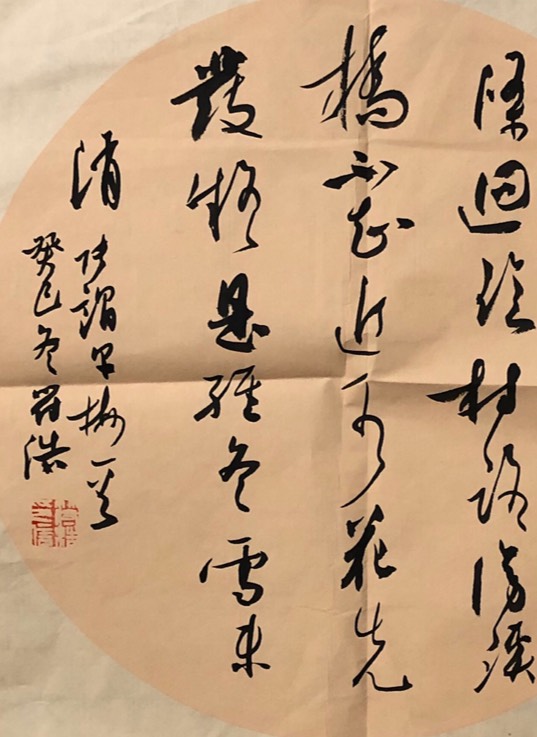 條迴臨村路傍溪
橋不知近水花先
發疑是經冬雪未
消
張謂早梅一首
癸巳冬